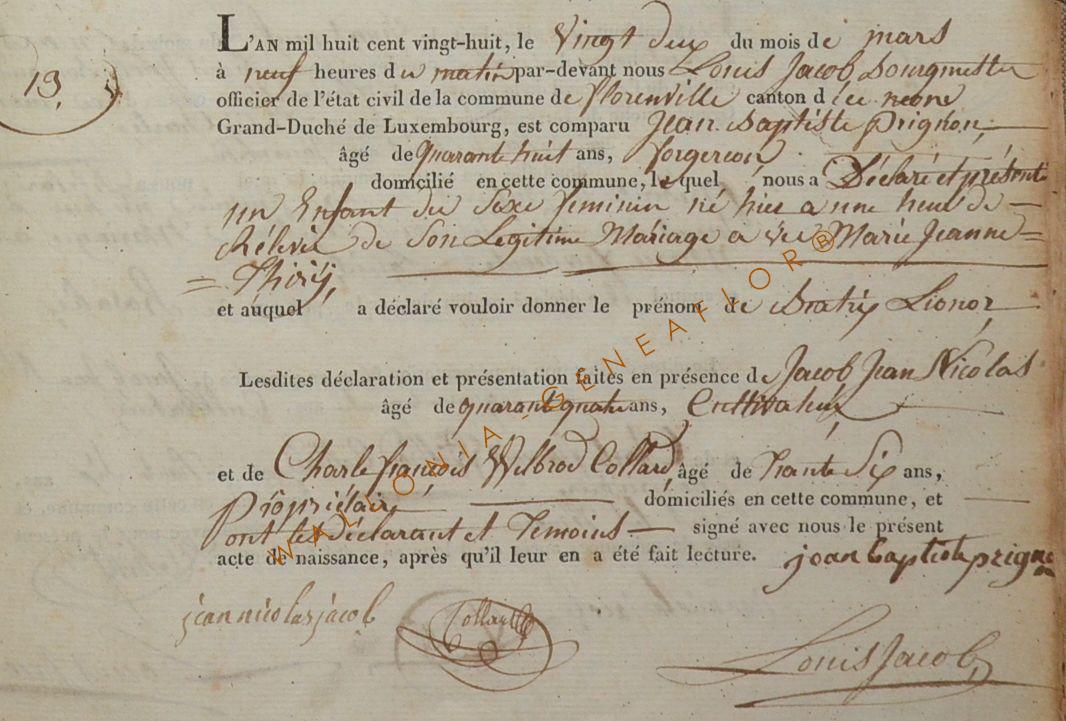 19.
L'AN mil huit cent vingt-huit, le Vingt deux du mois de mars
à neuf heures du matin par-devant nous Louis Jacob, Bourgmestre
officier de l'état civil de la commune de florenville canton d
Grand-Duché de Luxembourg, est comparu Jean Baptiste Prignon,
âgé de quarante huit ans, forgeron
domicilié en cette commune, lequel nous a Déclaré et présenté
un Enfant du Sexe feminin né hier a une heure de
Rélevée de Son Legitime Mariage avec Marie Jeanne =
= Thiry,
et auquel a déclaré vouloir donner le prénom de Lionor,
Lesdites déclaration et présentation faites en présence de Jacob Jean Nicolas
âgé de quarante quatre ans, Cultivateur,
et de Charle françois Wilbrod Collard, âgé de Trante Six ans,
Propriétaire, domiciliés en cette commune, et
ont les Déclarant et Temoins signé avec nous le présent
acte de naissance, après qu'il leur en a été fait lecture. jean baptiste prignon
jean nicolas jacob Collard Louis Jacob,
WALLONIA-GENEAFLOR®